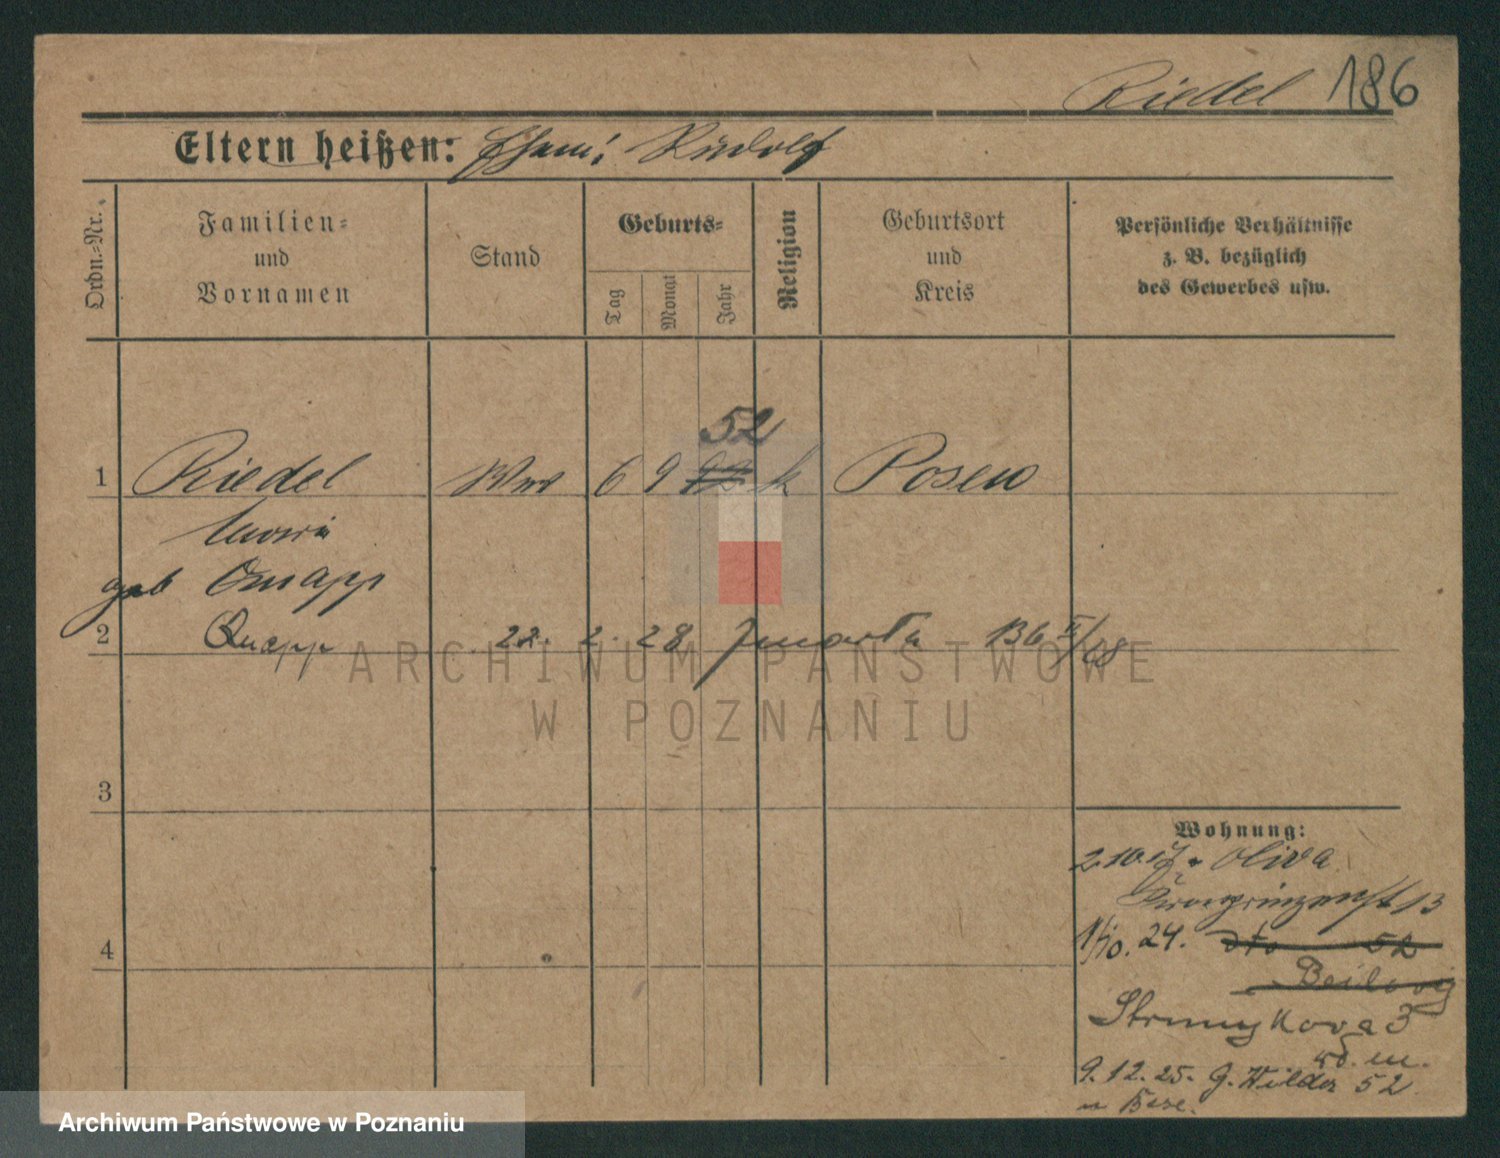 Riedel 186
Eltern heißen: Eham: Rudolf
Ordn.-Nr.
Familien-
und
Vornamen
Stand
Geburts-
Tag
Monat
Jahr
Religion
Geburtsort
und
Kreis
Persönliche Verhältnisse
z. B. bezüglich
des Gewerbes usw.
52
1 Riedel Wwe 6 9 k Posen
Maria
geb Knapp
2 Knapp 22. 2. 28 zmarła 136 II/68
ARCHIWUM PAŃSTWOWE
W POZNANIU
3
4
Wohnung:
2.10.17. Oliva
Kronprinzenst 13
1/10. 24. dto 52
Strumykova 3
9.12.25. G. Wilda 52
Archiwum Państwowe w Poznaniu